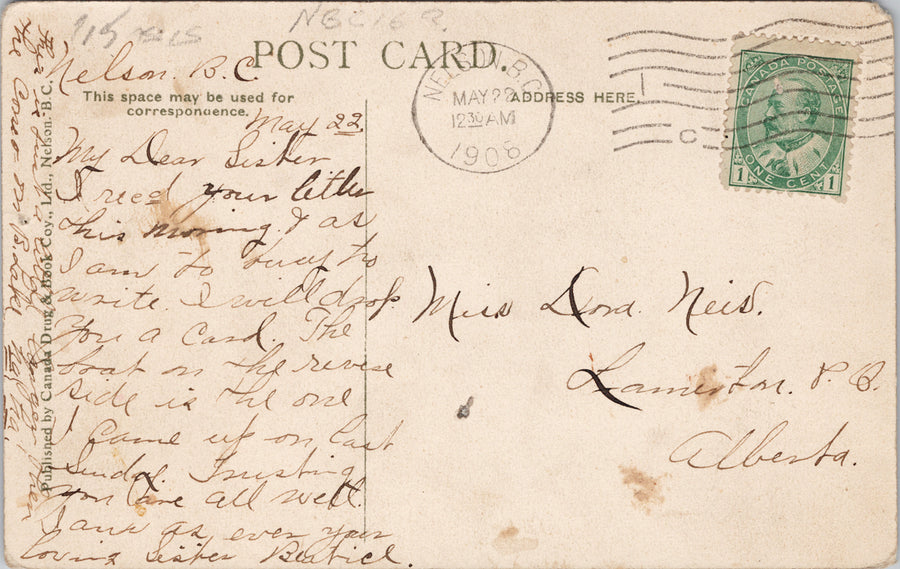 NBC168
POST CARD.
This space may be used for
correspondence.
ADDRESS HERE.
NELSON, B.C.
MAY 22
12 30 AM
1908
C
CANADA POSTAGE
1 ONE CENT 1
Nelson. B.C.
May 22.
My Dear Sister
I recd your letter
this morning. & as
I am to busy to
write. I will drop
you a card. The
boat on the revese
side is the one
I came up on last
Sunday. Trusting
you are all well.
I am as ever your
loving Sister Beatrice.
Miss Dora. Neis.
P.O.
Alberta.
Published by Canada Drug & Book Coy., Ltd., Nelson, B.C.